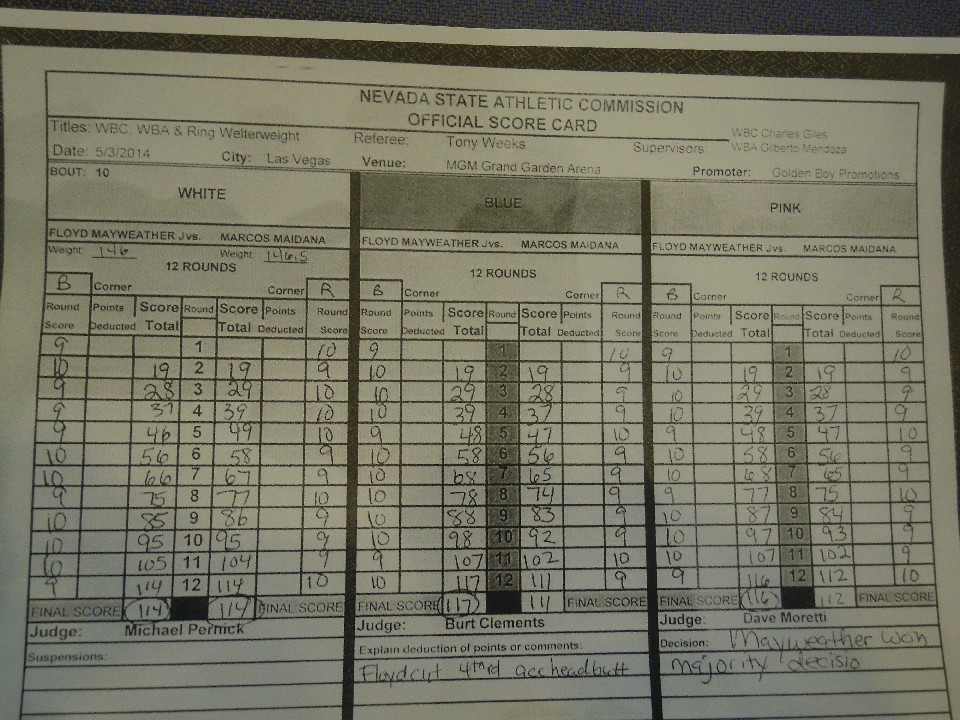 NEVADA STATE ATHLETIC COMMISSION
OFFICIAL SCORE CARD
Titles: WBC, WBA & Ring Welterweight Referee: Tony Weeks Supervisors: WBC Charles Giles
WBA Gilberto Mendoza
Date: 5/3/2014 City: Las Vegas Venue: MGM Grand Garden Arena Promoter: Golden Boy Promotions
BOUT: 10
WHITE BLUE PINK
FLOYD MAYWEATHER J vs. MARCOS MAIDANA FLOYD MAYWEATHER J vs. MARCOS MAIDANA FLOYD MAYWEATHER J vs. MARCOS MAIDANA
Weight: 146 Weight: 146.5
12 ROUNDS 12 ROUNDS 12 ROUNDS
B Corner Corner R B Corner Corner R B Corner Corner R
Round Points Score Round Score Points Round Round Points Score Round Score Points Round Round Points Score Round Score Points Round
Score Deducted Total Total Deducted Score Score Deducted Total Total Deducted Score Score Deducted Total Total Deducted Score
9 1 10 9 1 10 9 1 10
10 19 2 19 9 10 19 2 19 9 10 19 2 19 9
9 28 3 29 10 10 29 3 28 9 10 29 3 28 9
9 37 4 39 10 10 39 4 37 9 10 39 4 37 9
9 46 5 49 10 9 48 5 47 10 9 48 5 47 10
10 56 6 58 9 10 58 6 56 9 10 58 6 56 9
10 66 7 67 9 10 68 7 65 9 10 68 7 65 9
9 75 8 77 10 10 78 8 74 9 9 77 8 75 10
10 85 9 86 9 10 88 9 83 9 10 87 9 84 9
10 95 10 95 9 10 98 10 92 9 10 97 10 93 9
10 105 11 104 9 9 107 11 102 10 10 107 11 102 9
9 114 12 114 10 10 117 12 111 9 9 116 12 112 10
FINAL SCORE 114 114 FINAL SCORE FINAL SCORE 117 111 FINAL SCORE FINAL SCORE 116 112 FINAL SCORE
Judge: Michael Pernick Judge: Burt Clements Judge: Dave Moretti
Suspensions: Explain deduction of points or comments: Decision: Mayweather won
Floyd cut 4th rd acc headbutt majority decisio